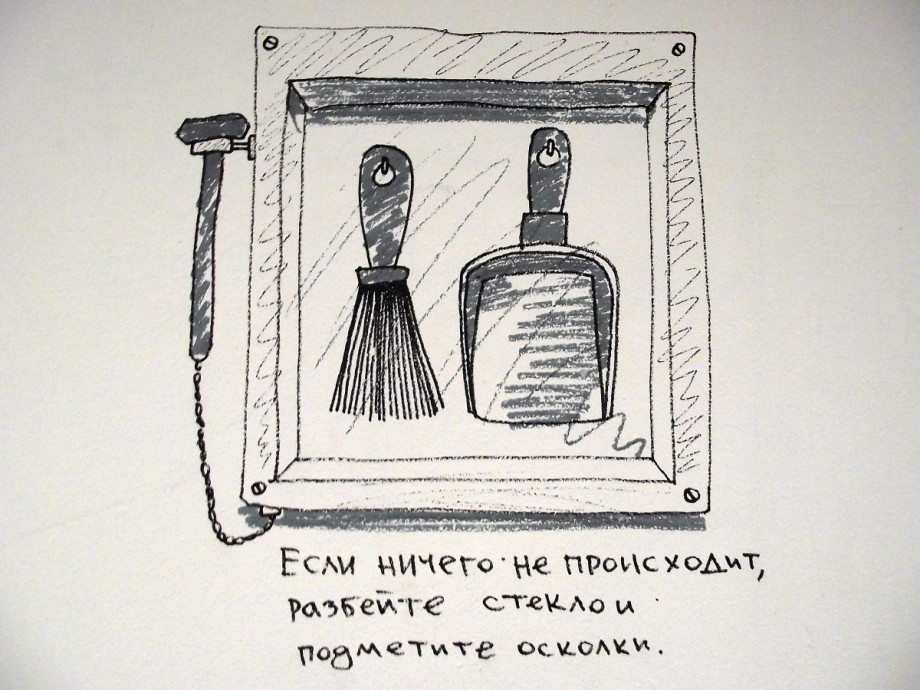 Если ничего не происходит,
разбейте стекло и
подметите осколки.